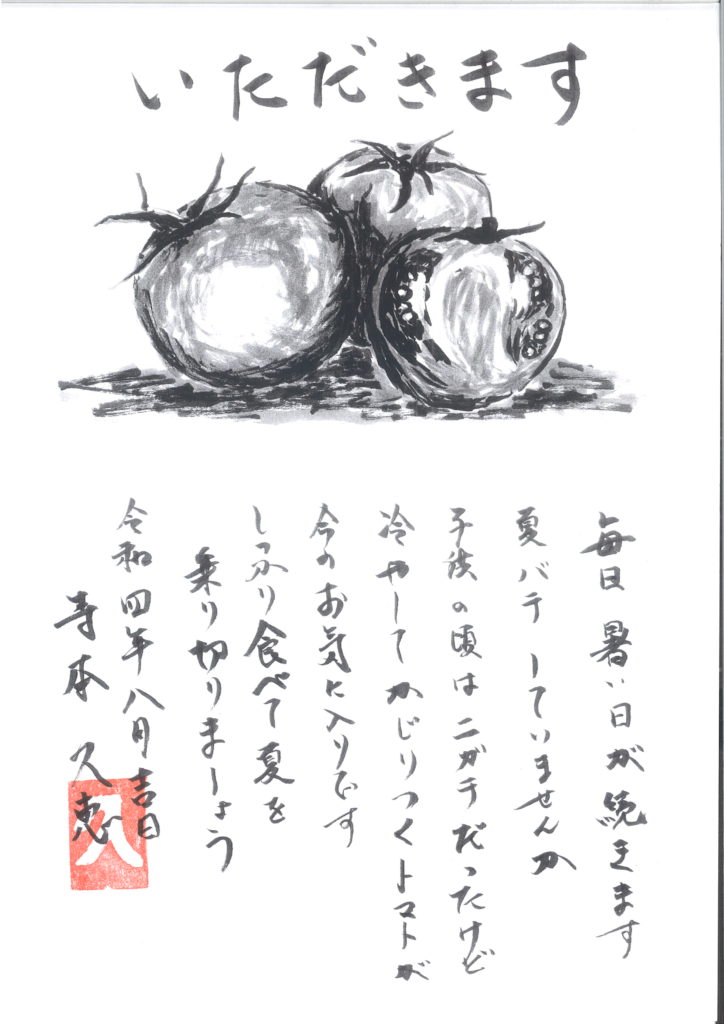 いただきます
毎日暑い日が続きます
夏バテしていませんか
子供の頃はニガテだったけど
冷やしてかじりつくトマトが
今のお気に入りです
しっかり食べて夏を
乗り切りましょう
令和四年八月吉日
寺本久恵
久